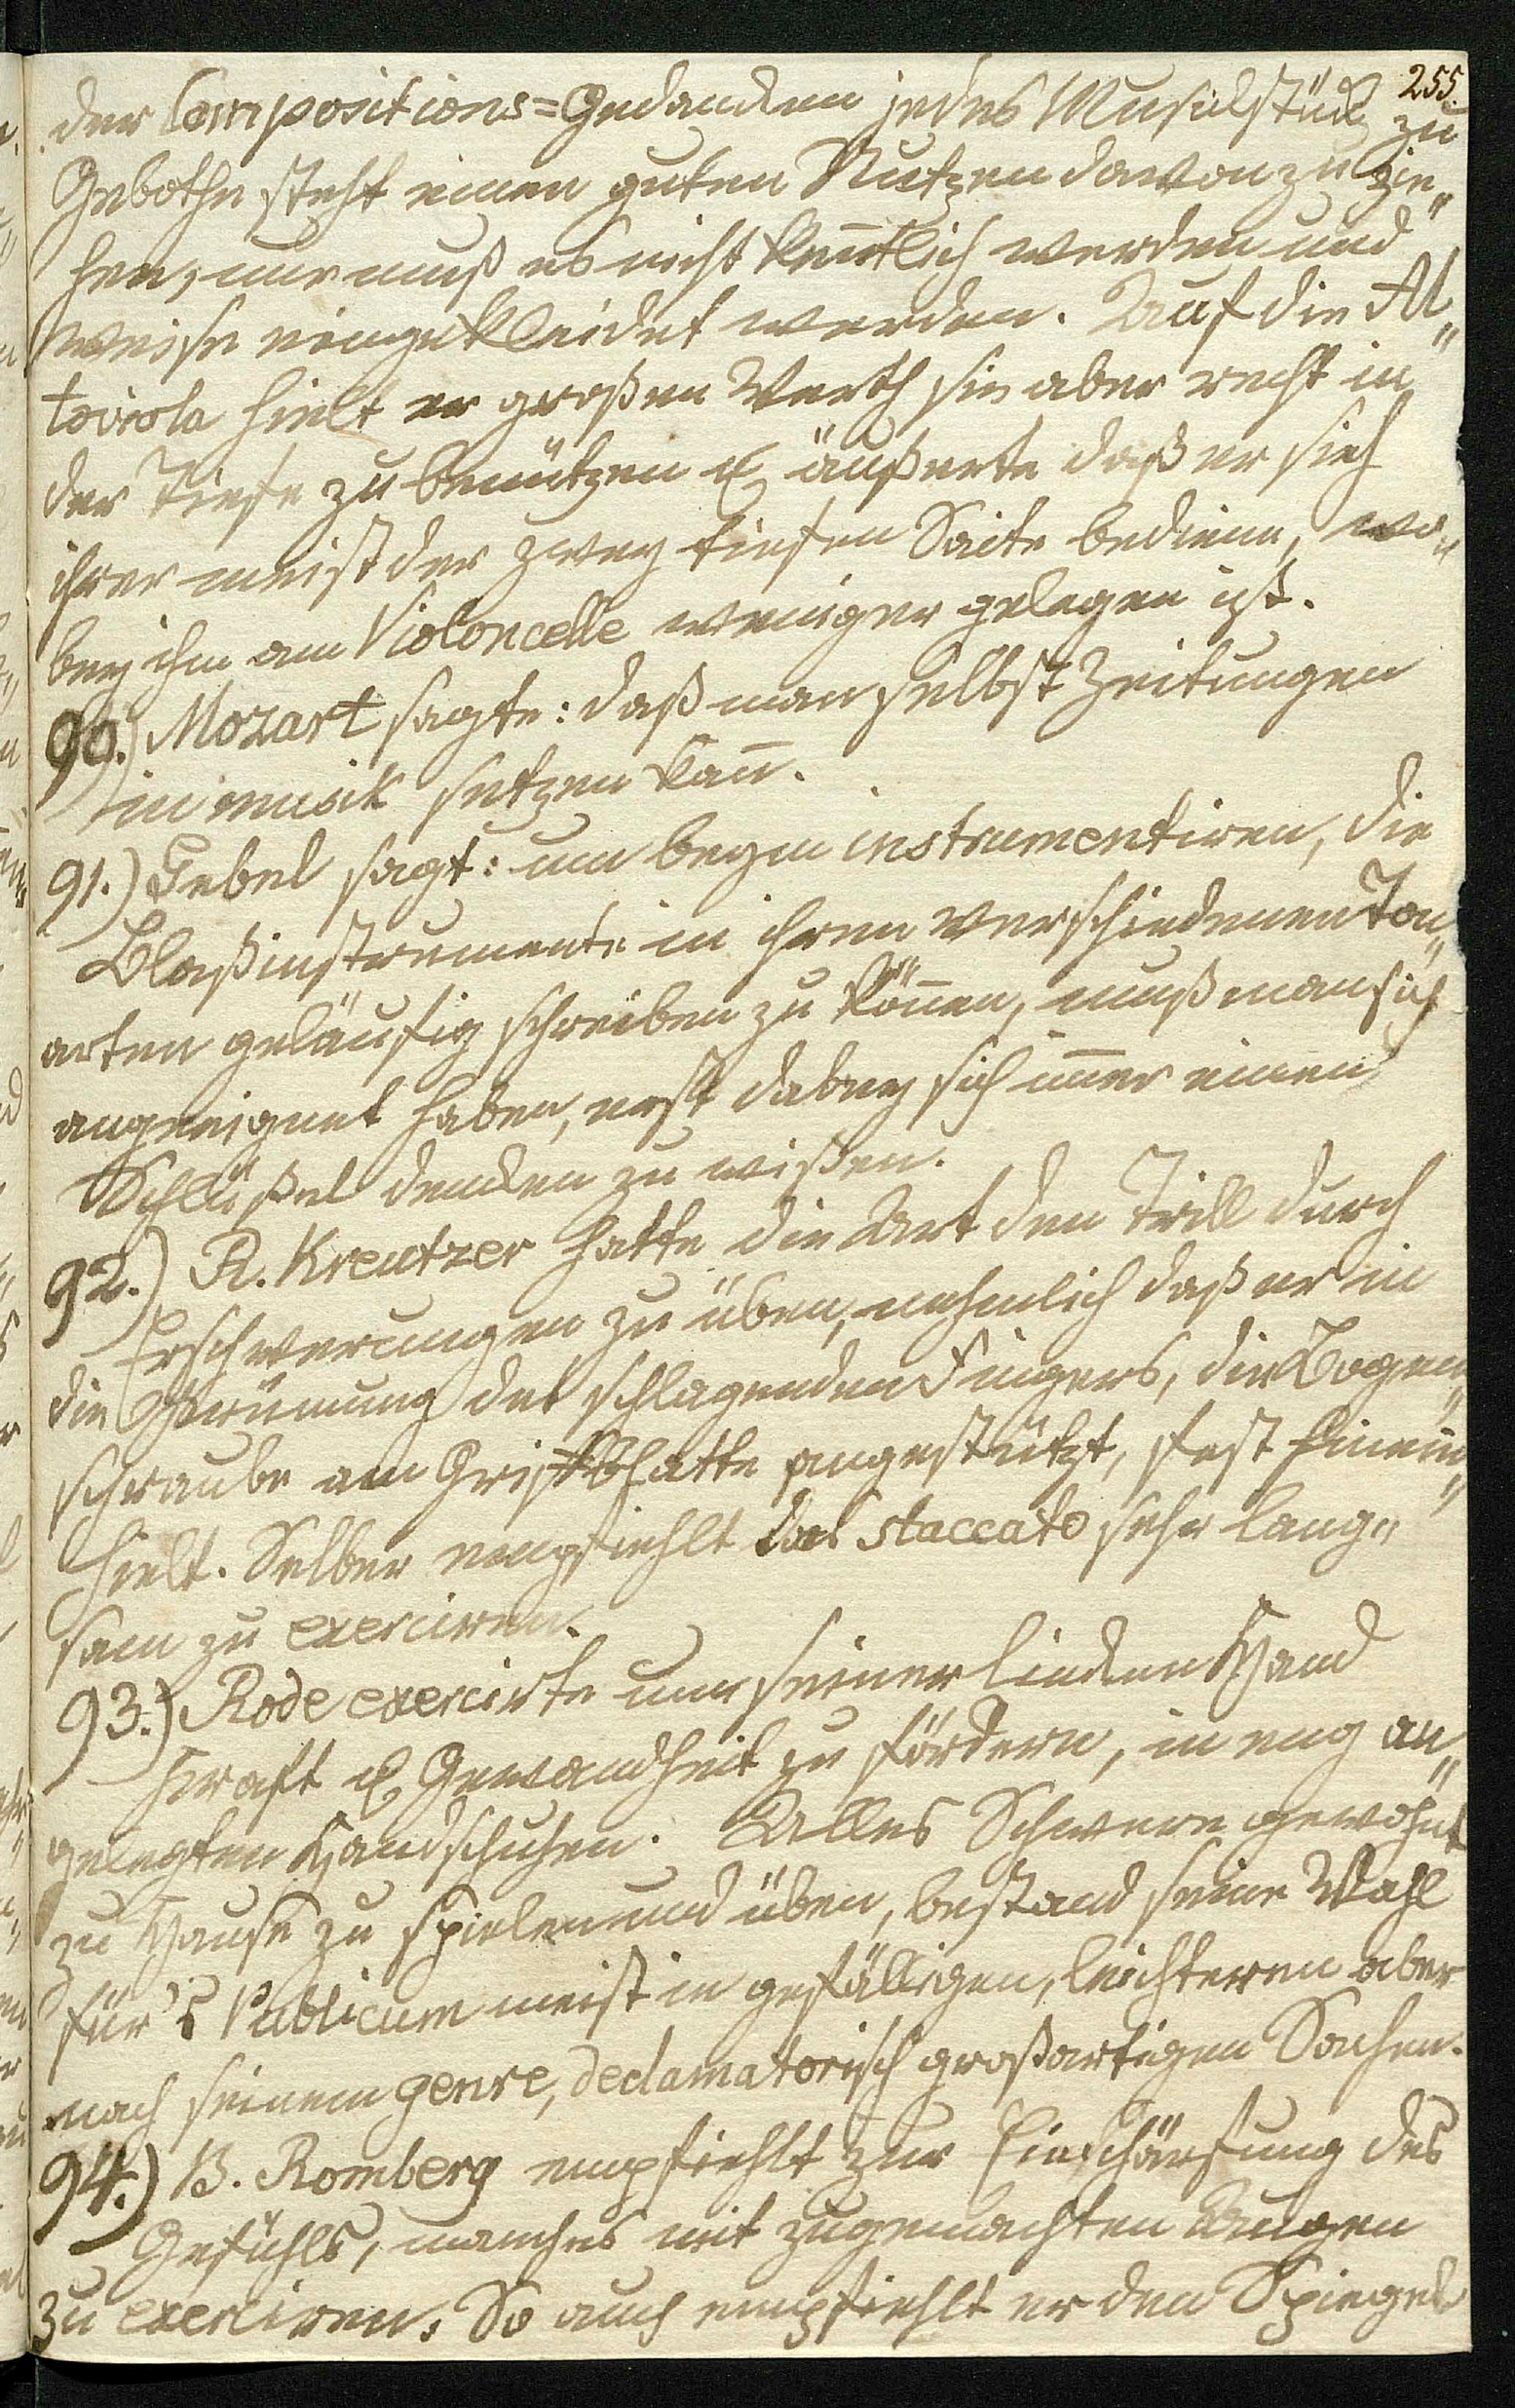 255.
der Compositions=Gedancken jedes Musickstück zu
Gebothe steht einen guten Nutzen davon zu zie„
hen, nur muß es nicht kenntlich werden und
weise eingekleidet werden. Auf die Al„
toviola hielt er großen Werth sie aber recht in
der Tiefe zu benützen u. äußerte daß er sich
ihrer meist der zwey tiefen Saite bediene, wo„
bey ihm am Violoncelle weniger gelegen ist.
90.) Mozart sagte: daß man selbst Zeitungen
in musik setzen kan̄.
91.) Gebel sagt: um beym instrumentiren, die
Blaßinstrumente in ihren verschiedenen Ton„
arten geläufig schreiben zu kön̄en, muß man sich
angeeignet haben, erst dabey sich im̄er einen
Schlüßel dencken zu wißen.
92.) R. Kreutzer hatte die Art den Trill durch
Erschwerungen zu üben, nehmlich daß er in
die Krüm̄ung des schlagenden Fingers, die Bogen„
schraube am Griffblatte angestützt, fest hinein„
hielt. Selber empfiehlt das staccato sehr lang„
sam zu exerciren.
93.) Rode exercirte um seiner lincken Hand
Kraft u. Gewandheit zu fördern, in eng an„
gelegten Handschuhen. Alles Schwere gewohnt
zu Hause zu spielen und üben, bestand seine Wahl
für's Publicum meist in gefälligen, leichteren aber
nach seinem genre, declamatorisch großartigen Sachen.
94.) B. Romberg empfiehlt zur Einschärfung des
Gefühls, manches mit zugemachten Augen
zu exerciren. So auch empfiehlt er den Spiegel